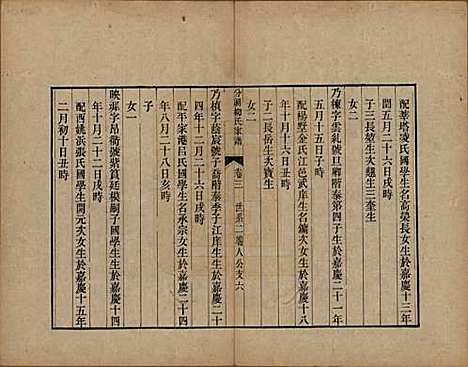 配莘塔凌氏國學生名高榮長女生於嘉慶十三年
閏五月二十六日戌時
子三長堃生次魏生三奎生
女二
乃棟字雲紅號旦卿階泰第四子生於嘉慶二十一年
五月十五日子時
配楊墅金氏吳江邑武庠生名鏞次女生於嘉慶十八
年十月十七日戌時
子二長岳生次寶生
女二
分湖柳氏家譜 卷三 世系二 春人公支 六
乃楨字蔭宸號子喬階泰季子江庠生生於嘉慶二十
四年十二月二十六日寅時
配平家港呂氏國學生名承宗女生於嘉慶二十四
年八月二十八日亥時
子
女一
映墀字吊衢號紫貢廷模嗣子國學生生於嘉慶十四
年十月二十二日戌時
配西姚浜張氏國學生開元次女生於嘉慶十五年
二月初十日丑時